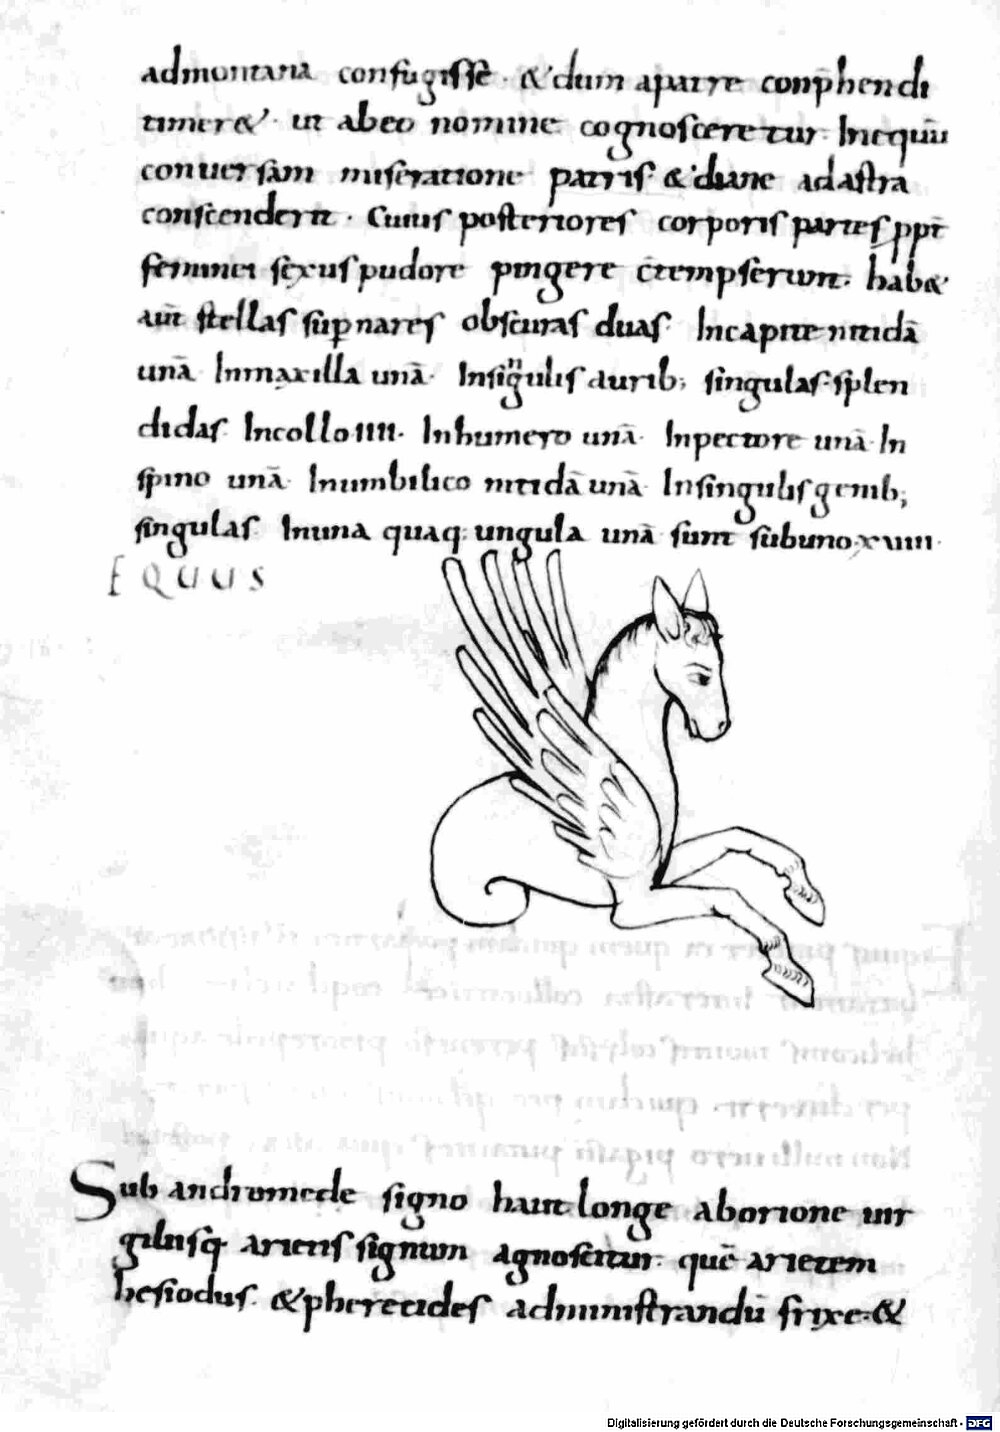 admontana confugisse · &dum apatre conp̄hendi
timer& · ut abeo nomine cognosceretur · Inequū
conuersam miseratione patris &diane adastra
conscenderit · Cuius posteriores corporis partes ppt̄
feminei sexus pudore pingere c̄tempserunt · hab&
aut̄ stellas sup nares obscuras duas · Incapite nitidā
unā · Inmaxilla unā · Insigulis aurib; singulas splen
didas · Incollo IIII · Inhumero unā · Inpectore unā · In
spino unā · Inumbilico nitidā unā · Insingulis genib;
singulas · Inuna quaq; ungula unā sunt subuno xuiiii ·
EQUUS
Sub andromede signo haut longe aborione uir
giliisq arietis signum agnoscitur · quē arietem
hesiodus · &pheretides administrandū frixe · &
Digitalisierung gefördert durch die Deutsche Forschungsgemeinschaft - DFG